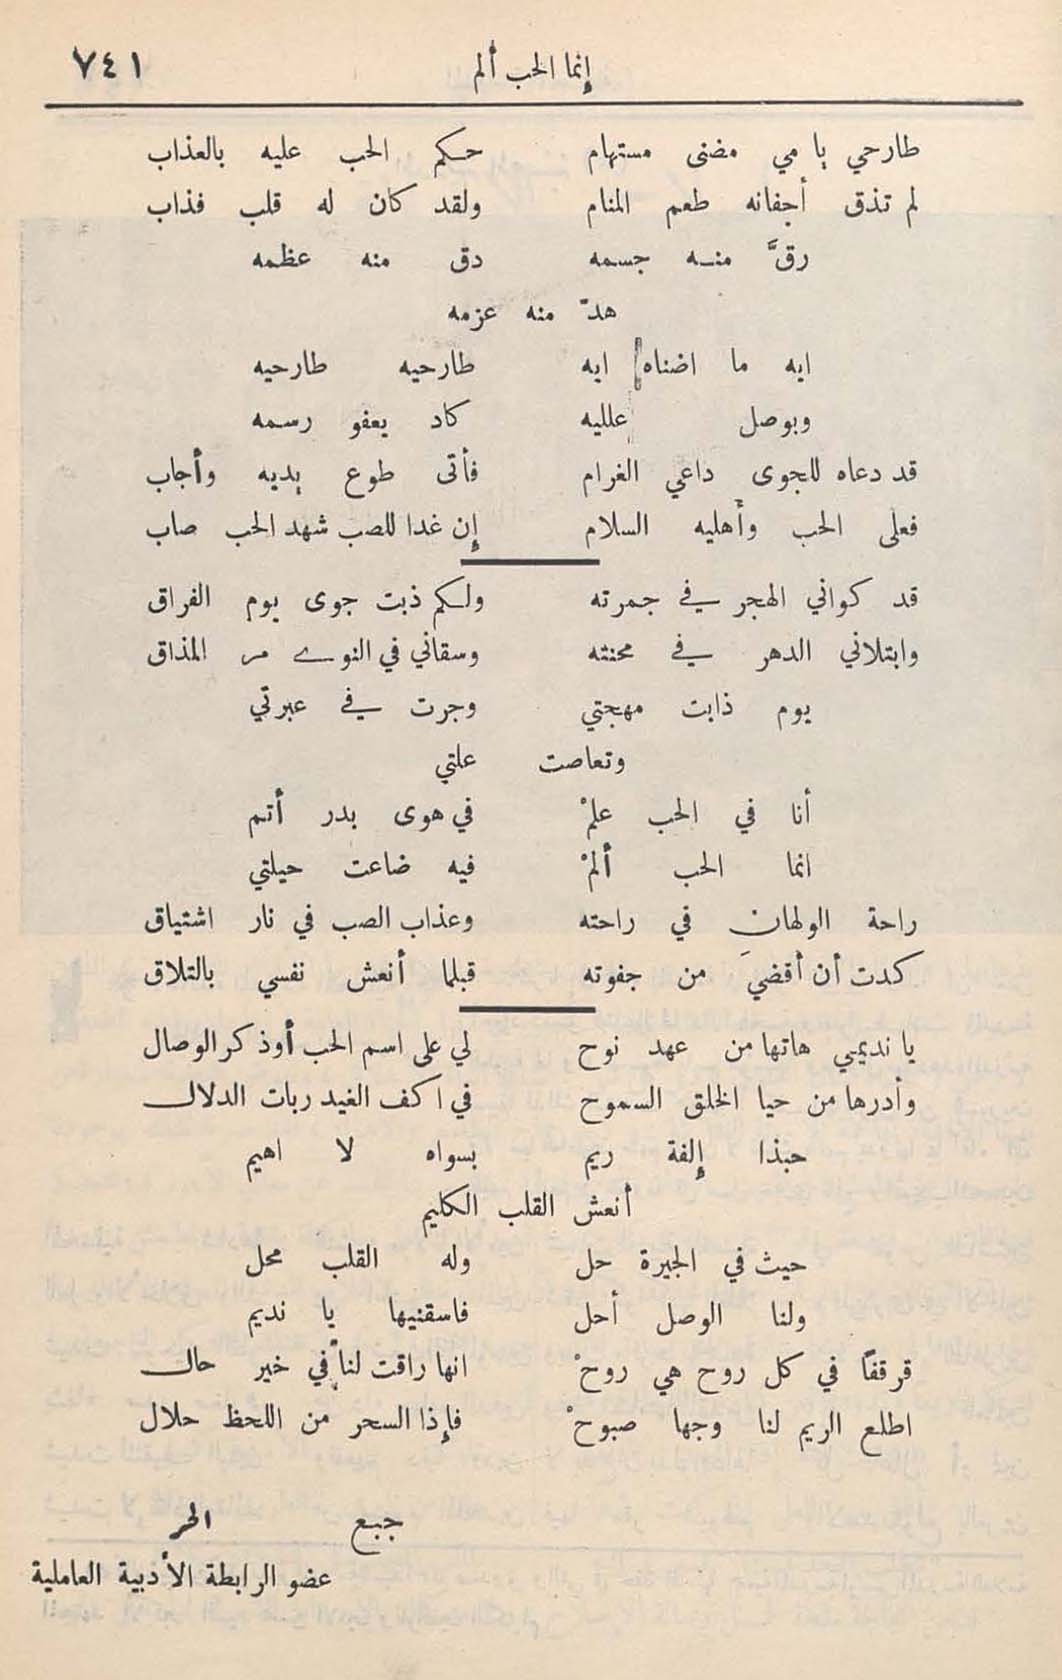 إنما الحب ألم ٧٤١
طارحي يا مي مضنى مستهام حكم الحب عليه بالعذاب
لم تذق أجفانه طعم المنام ولقد كان له قلب فذاب
رقَّ منه جسمه دق منه عظمه
هدّ منه عزمه
ايه ما اضناه ايه طارحيه طارحيه
وبوصل علليه كاد يعفو رسمه
قد دعاه للجوى داعي الغرام فأتى طوع يديه وأجاب
فعلى الحب وأهليه السلام إن غدا للصب شهد الحب صاب
قد كواني الهجر في جمرته ولكم ذبت جوى يوم الفراق
وابتلاني الدهر في محنته وسقاني في النوى مر المذاق
يوم ذابت مهجتي وجرت في عبرتي
وتعاصت علتي
أنا في الحب علمْ في هوى بدر أتم
انما الحب ألمْ فيه ضاعت حيلتي
راحة الولهان في راحته وعذاب الصب في نار اشتياق
كدت أن أقضيَ من جفوته قبلما أنعش نفسي بالتلاق
يا نديمي هاتها من عهد نوح لي على اسم الحب أو ذكر الوصال
وأدرها من حيا الخلق السموح في اكف الغيد ربات الدلال
حبذا إلفة ريم بسواه لا اهيم
أنعش القلب الكليم
حيث في الجيرة حل وله القلب محل
ولنا الوصل أحل فاسقنيها يا نديم
قرقفاً في كل روح هي روحْ انها راقت لنا في خير حال
اطلع الريم لنا وجها صبوحْ فإذا السحر من اللحظ حلال
جبع الحر
عضو الرابطة الأدبية العاملية